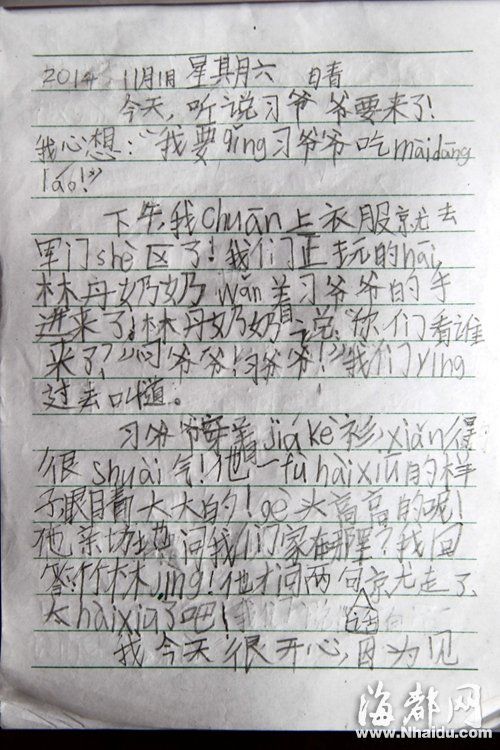 2014 11月1日 星其月六 日青
今天，听说习爷爷要来了！
我心想：“我要qǐng习爷爷吃màidāng
láo！”
下午，我chuān上衣服就去
军门shè区了！我们正玩的hāi，
林丹奶奶wǎn羊习爷爷的手
进来了，林丹奶奶说：“你们看谁
来了？”“习爷爷！习爷爷！”我们yíng
过去叫道。
习爷爷穿着jiákè衫，xiǎn得
很shuài气！他一fù hàixiū的样
子眼睛大大的！gè头高高的呢！
他亲切地问我们家在哪里？我回
答：竹林jìng！他才问两句就走了
太hàixiū了吧！
话
我今天很开心，因为见
海都网
www.Nhaidu.com